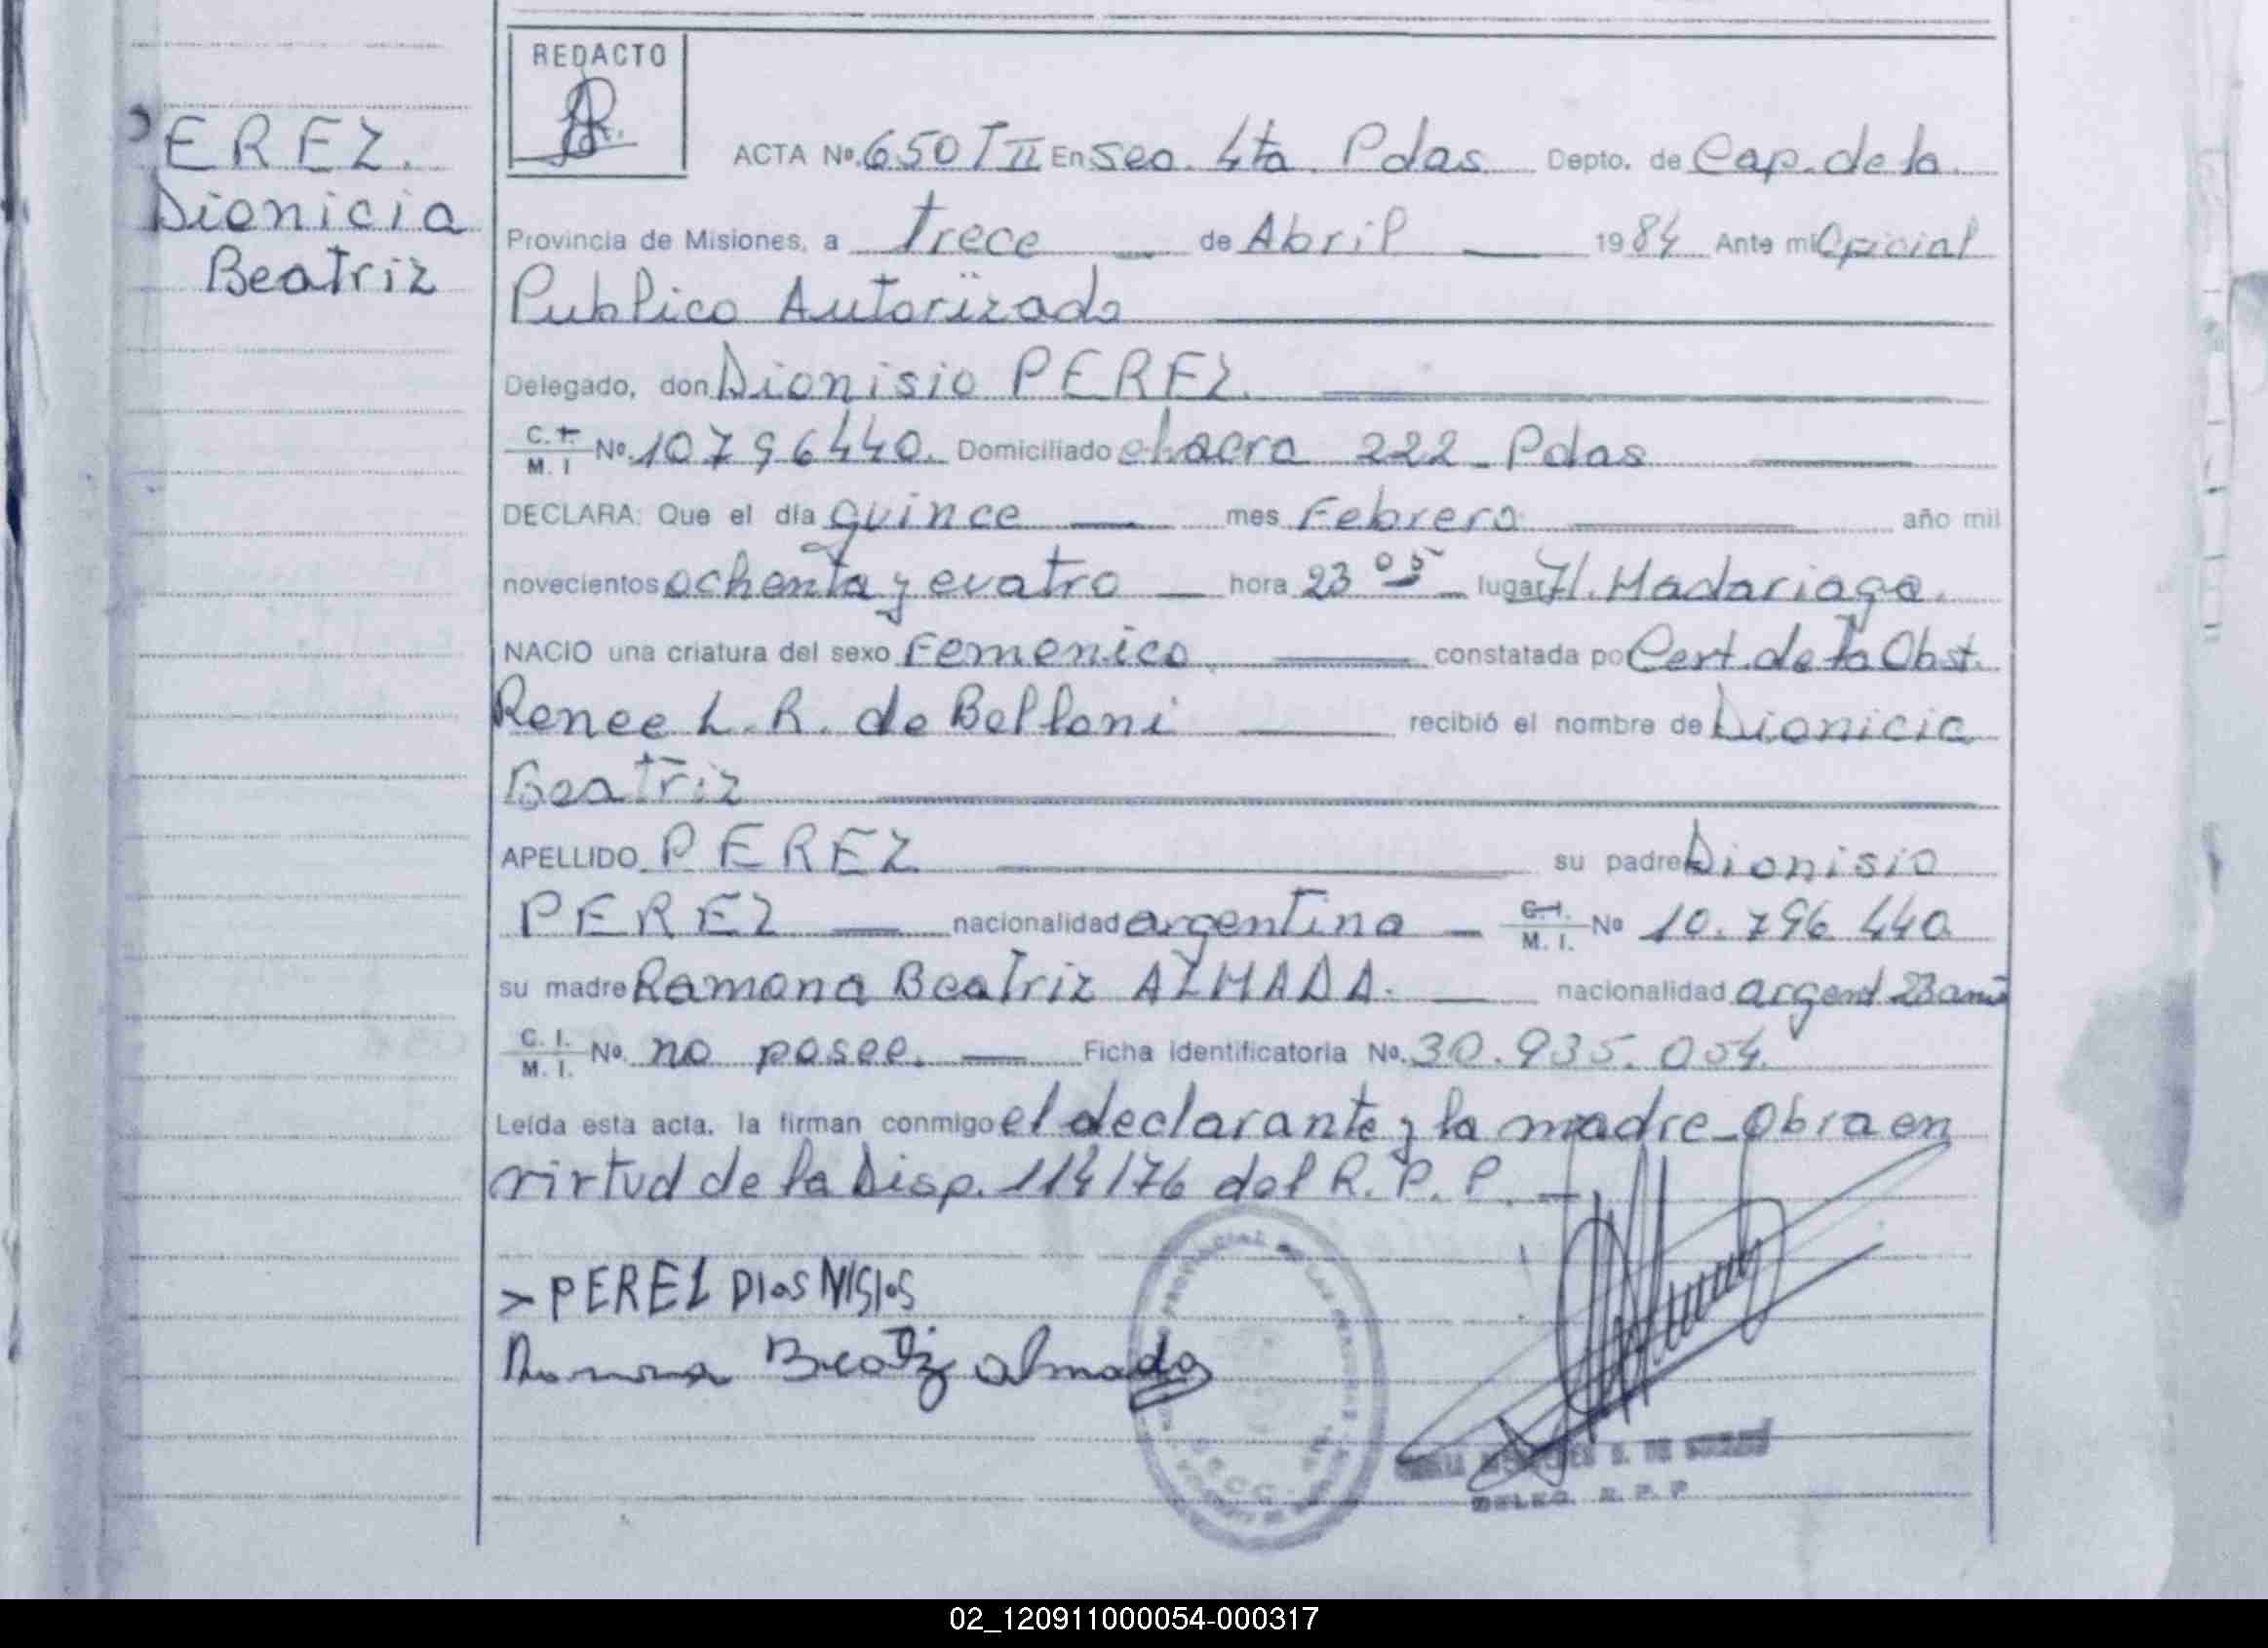 REDACTO
PEREZ.
Dionicia
Beatriz
ACTA No. 650 T II En Sec. 4ta. Pdas Depto. de Cap. de la
Provincia de Misiones, a trece de Abril 1984 Ante mi Oficial
Publico Autorizado
Delegado, don Dionisio PEREZ.
C.I. M.I No. 10796440. Domiciliado chacra 222 - Pdas
DECLARA: Que el día quince mes Febrero año mil
novecientos ochenta y cuatro hora 23 05 lugar H. Madariaga.
NACIO una criatura del sexo Femenico constatada por Cert. de la Obst.
Renee L. R. de Belloni recibió el nombre de Dionicia
Beatriz
APELLIDO PEREZ su padre Dionisio
PEREZ nacionalidad argentina C.I. M.I. No 10.796.440
su madre Ramona Beatriz ALMADA. nacionalidad argent 23 años
C.I. M.I. No. no posee. Ficha identificatoria No. 30.935.054.
Leída esta acta, la firman conmigo el declarante y la madre - Obra en
virtud de la Disp. 114/76 del R. P. P.
PEREZ DIOSNISIOS
Ramona Beatriz Almada
DELEG. R. P. P
02_120911000054-000317